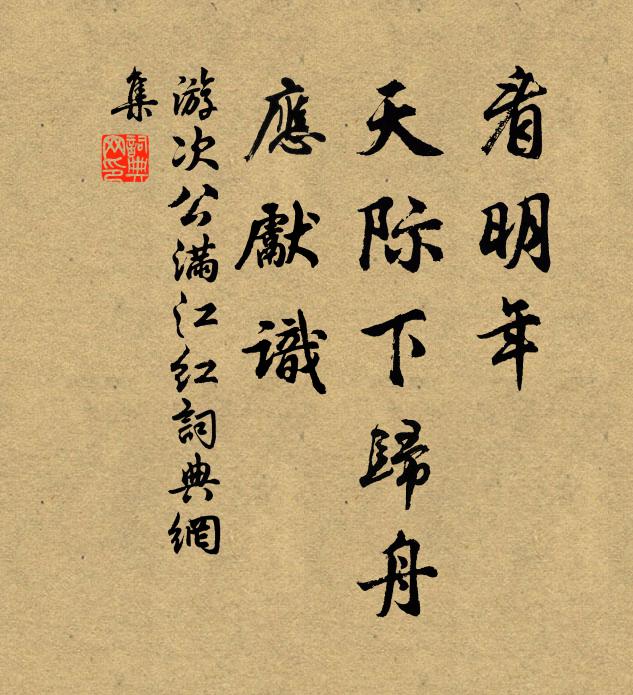 看明年
天际下歸舟
應獻識
游次公满江红詞典網
集
詞典
网印